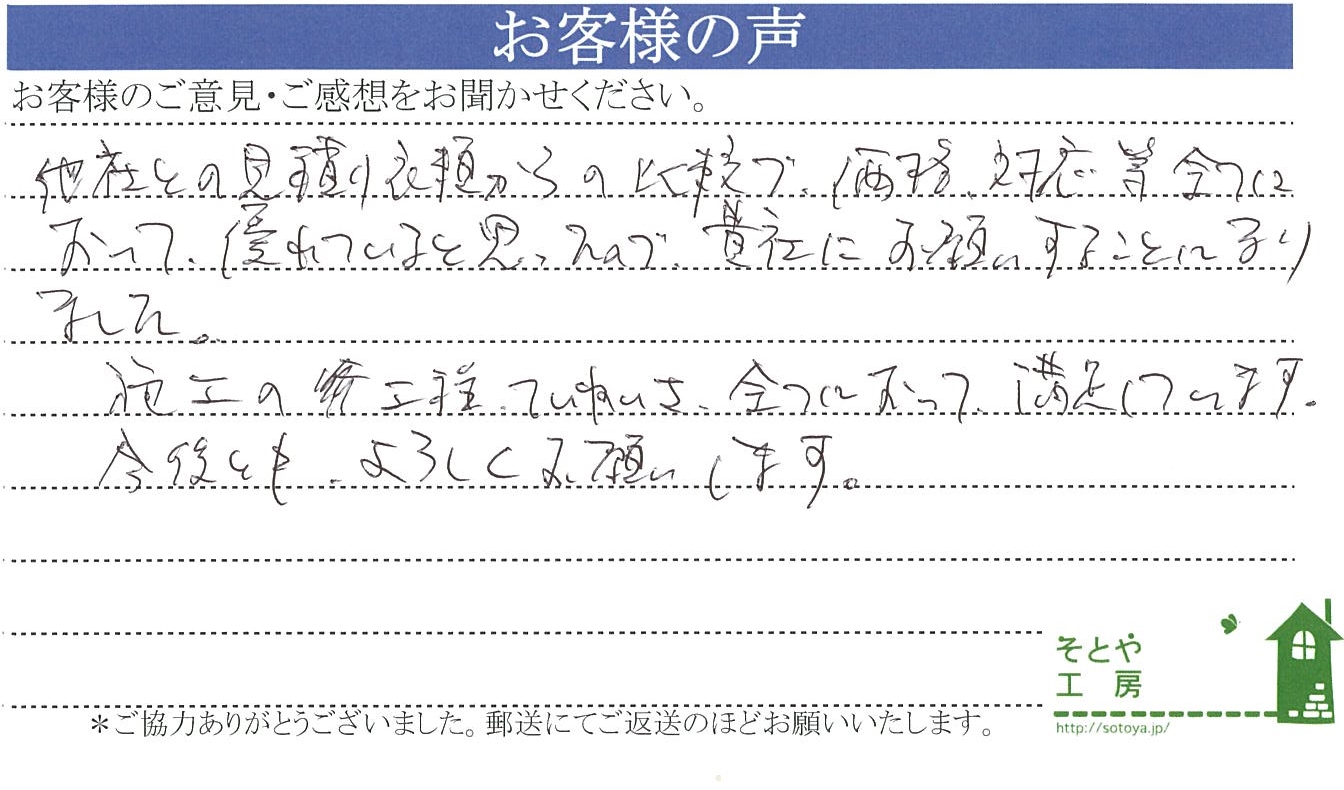 お客様の声
お客様のご意見・ご感想をお聞かせください。
他社との見積り依頼からの比較で、価格、対応等全てに
おいて、優れていると思ったので、貴社にお願いすることになり
ました。
施工の各工程、ていねいさ、全てにおいて、満足しています。
今後とも、よろしくお願いします。
そとや
工房
http://sotoya.jp/
＊ご協力ありがとうございました。郵送にてご返送のほどお願いいたします。